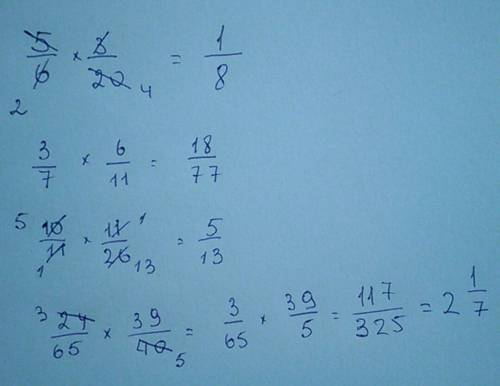 5/6 × 3/20 = 1/8
2 4
3/7 × 6/11 = 18/77
5 10/11 × 11/26 = 5/13
1 1 13
3 24/65 × 39/40 = 3/65 × 39/5 = 117/325 = 2 1/7
5